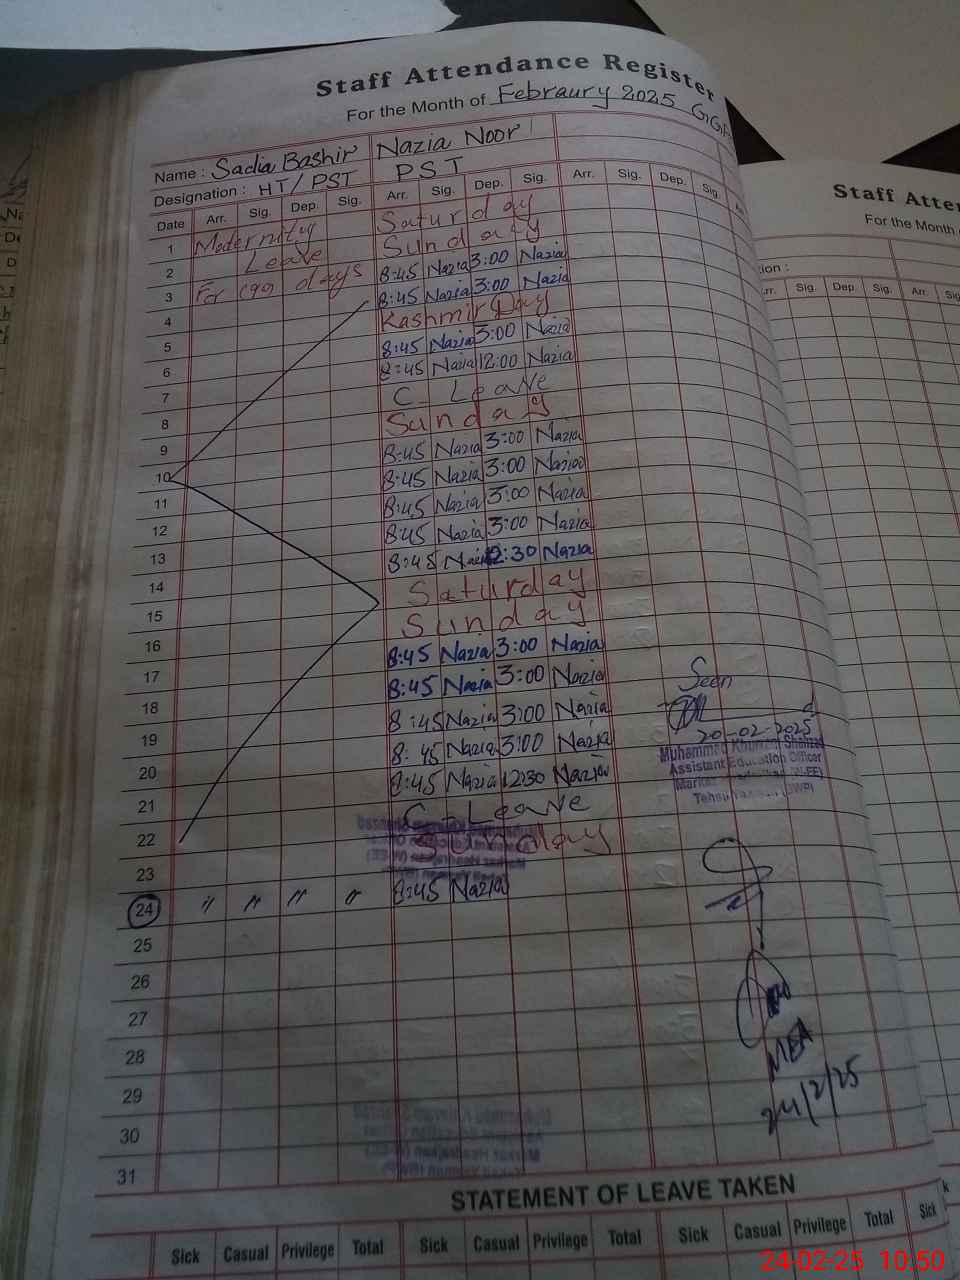 Staff Attendance Register
For the Month of Febraury 2025
Name : Sadia Bashir Nazia Noor
Designation : HT/PST PST
Date Arr. Sig. Dep. Sig. Arr. Sig. Dep. Sig. Arr. Sig. Dep. Sig.
1 Maternity Saturday
2 Leave Sunday
3 For days 8:45 Nazia 3:00 Nazia
4 8:45 Nazia 3:00 Nazia
5 Kashmir Day
6 8:45 Nazia 3:00 Nazia
7 8:45 Nazia 12:00 Nazia
8 C. Leave
9 Sunday
10 8:45 Nazia 3:00 Nazia
11 8:45 Nazia 3:00 Nazia
12 8:45 Nazia 3:00 Nazia
13 8:45 Nazia 3:00 Nazia
14 8:45 Nazia 12:30 Nazia
15 Saturday
16 Sunday
17 8:45 Nazia 3:00 Nazia
18 8:45 Nazia 3:00 Nazia
19 8:45 Nazia 3:00 Nazia
20 8:45 Nazia 3:00 Nazia
21 8:45 Nazia 12:30 Nazia
22 C. Leave
23 Sunday
24 〃 〃 〃 〃 8:45 Nazia
25
26
27
28
29
30
31
Seen
20-02-2025
Muhammad Khurram Shahzad
Assistant Education Officer
MEA
24/2/25
STATEMENT OF LEAVE TAKEN
Sick Casual Privilege Total Sick Casual Privilege Total Sick Casual Privilege Total Sick
Staff Atten
For the Month
tion :
Arr. Sig. Dep. Sig. Arr. Sig
24-02-25 10:50